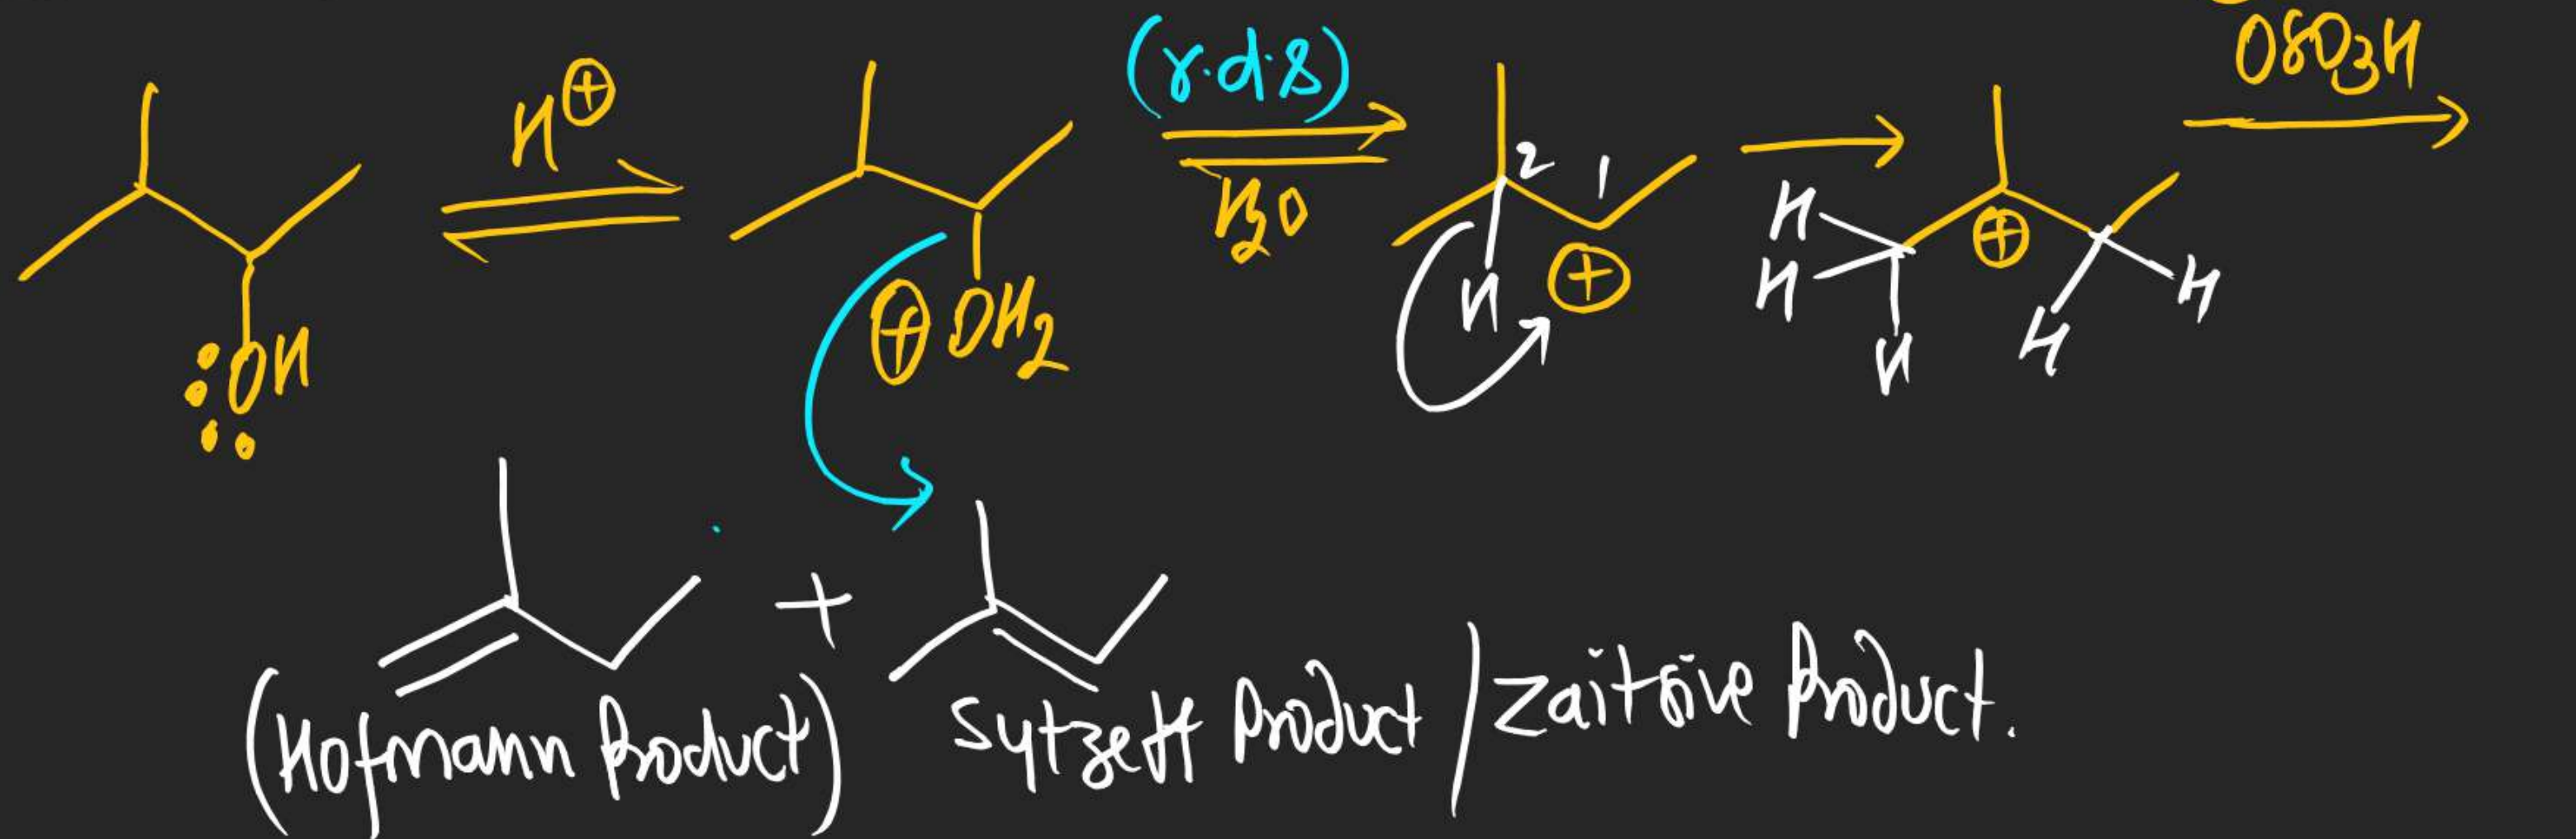 H⊕ (r.d.s) H2O OSO3H
:OH ⊕OH2 2 1 H ⊕ H H H ⊕ H H
+
(Hofmann Product) Sytzeff Product / Zaitsive Product.